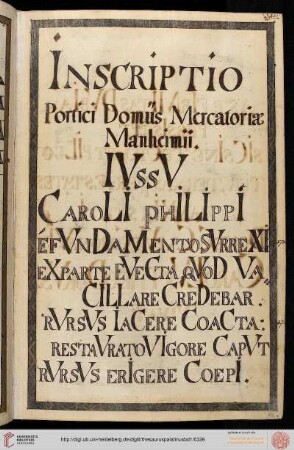 INSCRIPTIO
Portici Domûs Mercatoriæ
Manheimii.
IVssV
CaroLI phILIppI
éfVnDaMentosVrreXI
eXparte eVeCtá qVoD Va
CILLare CreDebar.
rVrsVs IaCere CoaCta:
restaVratoVIgore CapVt
rVrsVs erIgere CoepI.
http://digi.ub.uni-heidelberg.de/diglit/thesauruspalatinusbd1/0336